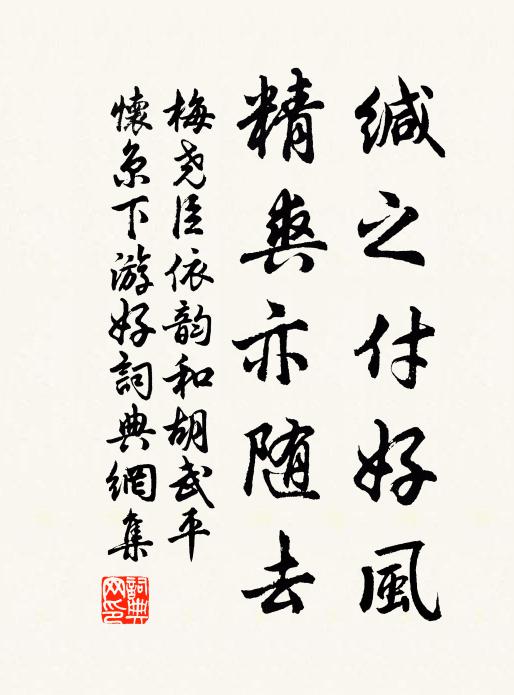 缄之付好風
精爽亦随去
梅尧臣依韵和胡武平
懷京下游好詞典網集
詞典網印